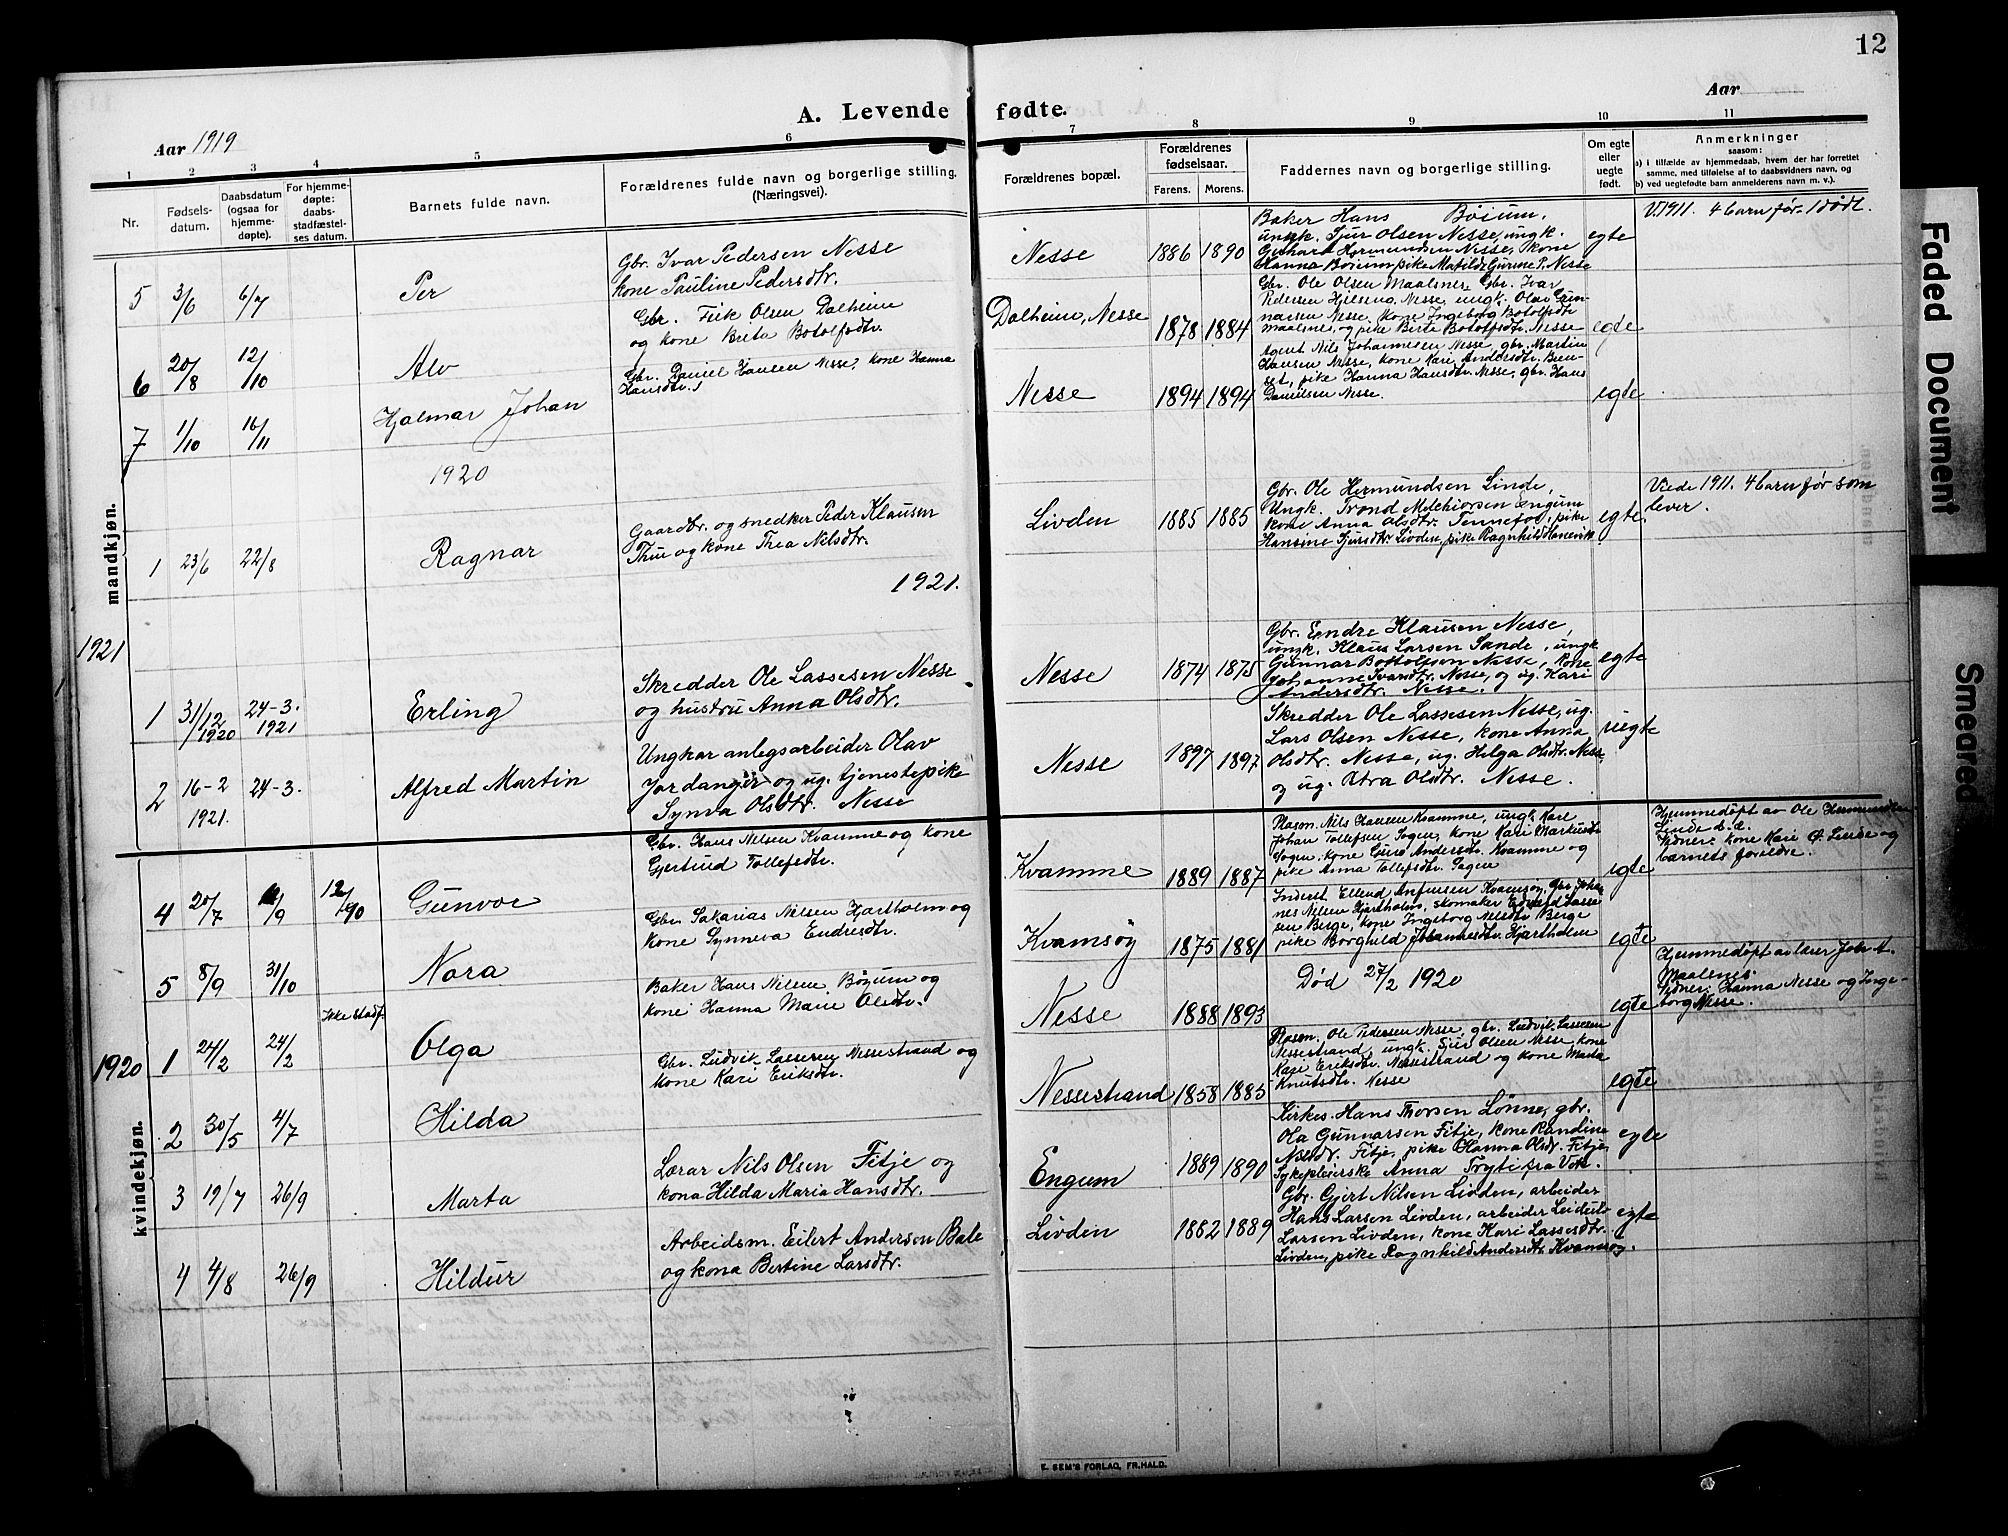 12
A. Levende fødte.
Aar 1919
Aar
1 2 3 4 5 6 7 8 9 10 11
Nr.
Fødsels-
datum.
Daabsdatum
(ogsaa for
hjemme-
døpte).
For hjemme-
døpte:
daabs-
stadfæstel-
ses datum.
Barnets fulde navn.
Forældrenes fulde navn og borgerlige stilling.
(Næringsvei).
Forældrenes bopæl.
Forældrenes
fødselsaar.
Farens. Morens.
Faddernes navn og borgerlige stilling.
Om egte
eller
uegte
født.
Anmerkninger
saasom:
a) i tilfælde av hjemmedaab, hvem der har forrettet
samme, med tilføielse af to daabsvidners navn, og
b) ved uegtefødte barn anmelderens navn m. v.).
mandkjøn.
5 3/6 6/7 Per
Gbr. Ivar Pedersen Nesse
kone Pauline Pedersdtr.
Nesse 1886 1890
Baker Hans Bøium,
ungk. Sjur Olsen Nesse, ungk.
Gerhart Hermundsen Nesse, kone
Hanna Bøium, pike Matilde Gurine P. Nesse
egte
V. 1911. 4 barn før. 1 dødt.
6 20/8 12/10 Alv
Gbr. Eirik Olsen Dalheim
og kone Brita Botolfsdtr.
Dalheim, Nesse 1878 1884
Gbr. Ole Olsen Maalsnes, Gbr. Ivar
Pedersen Hjelseng, Nesse, ungk. Olav Gun-
narsen Nesse, kone Ingeborg Botolfsdtr
Maalsnes, og pike Birte Botolfsdtr. Nesse
egte
7 1/10 16/11 Hjalmar Johan
Gbr. Daniel Hansen Nesse, kone Hanna
Hansdtr.
Nesse 1894 1894
Agent Nils Johannesen Nesse, gbr. Martin
Hansen Nesse, kone Kari Andersdtr.
pike Hanna Hansdtr. Nesse, gbr. Hans
Danielsen Nesse.
egte
1920
1 23/6 22/8 Ragnar
Gaardbr. og snedker Peder Klausen
Thue og kone Thea Nilsdtr.
Livden 1885 1885
Gbr. Ole Hermundsen Linde,
Ungk. Trond Melchiorsen Engum
kone Anna Olsdtr. Tennefos, pike
Hansine Sjursdtr. Livden, pike Ragnhild
egte
Viede 1911. 4 barn før som
lever.
1921.
1921
1 31/12 1920 24-3. 1921 Erling
Skredder Ole Lassesen Nesse
og hustru Anna Olsdtr.
Nesse 1874 1875
Gbr. Endre Klausen Nesse,
ungk. Klaus Larsen Sande, ungk
Gunnar Bottolfsen Nesse, kone
Johanne Ivarsdtr. Nesse, og ug. Kari
Andersdtr. Nesse.
egte
2 16-2 1921. 24-3. Alfred Martin
Ungkar anlegsarbeider Olav
Jordanger og ug. tjenestepike
Synva Olsdtr. Nesse
Nesse 1897 1897
Skredder Ole Lassesen Nesse, ug.
Lars Olsen Nesse, kone Anna
Olsdtr. Nesse, ug. Helga Olsdtr. Nesse
og ug. Olsdtr. Nesse.
uegte
kvindekjøn.
4 20/7 /9 Gunvor
Gbr. Hans Nilsen Kvamme og kone
Gjertrud Tollefsdtr.
Kvamme 1889 1887
Plasm. Nils Hansen Kvamme, ungk. Karl
Johan Tollefsen Sogen, kone Kari Markusd.
Sogen, kone Guro Andersdtr. Kvamme og
pike Anna Tollefsdtr. Sogen
egte
Hjemmedøpt av Ole Hermundsen
Linde s.d.
Vidner: kone Kari O. Linde og
barnets foreldre.
5 8/9 31/10 Nora
Gbr. Sakarias Nilsen Hjartholm og
kone Synneva Endresdtr.
Kvamsøy 1875 1881
Inderst Ellend Anfinsen Kvamsøy, Gbr. Johan-
nes Nilsen Hjartholm, skomaker Edvard Lasse-
sen Berge, kone Ingeborg Nilsdtr Berge
pike Borghild Johannesdtr. Hjartholm
egte
1920
Ikke stadf.
1 24/2 24/2 Olga
Baker Hans Nilsen Bøyum og
kone Hanna Marie Olsdtr.
Nesse 1888 1893
Død 27/2 1920
egte
Hjemmedøpt av lærer Joh. A.
Maalsnes.
Vidner: Hanna Nesse og Inge-
borg Nesse.
2 30/5 4/7 Hilda
Gbr. Ludvik Lassesen Nessestrand og
kone Kari Eriksdtr.
Nessestrand 1858 1885
Plasm. Ole Pedersen Nesse, gbr. Ludvik Lassesen
Nessestrand, ungk. Sjur Olsen Nesse, kone
Kari Eriksdtr. Nessestrand og kone Marta
Knutsdtr. Nesse
egte
3 19/7 26/9 Marta
Lærar Nils Olsen Fitje og
kona Hilda Maria Hansdtr.
Engum 1889 1890
Kirkes. Hans Thorsen Lønne, gbr.
Ola Gunnarsen Fitje, kone Randine
Nilsdtr. Fitje, pike Hanna Olsdr. Fitje,
Sykepleierske Anna Tryti fra Vik.
egte
4 4/8 26/9 Hildur
Arbeidsm. Eilert Andersen Bale
og kona Bertine Larsdtr.
Livden 1882 1889
Gbr. Gjert Nilsen Livden, arbeider
Hans Larsen Livden, arbeider Leidulv
Larsen Livden, kone Kari Lassesdtr.
Livden, pike Ragnhild Andersdtr. Kvamsøy.
egte
E. SEM'S FORLAG, FR.HALD.
Faded Document
Smeared